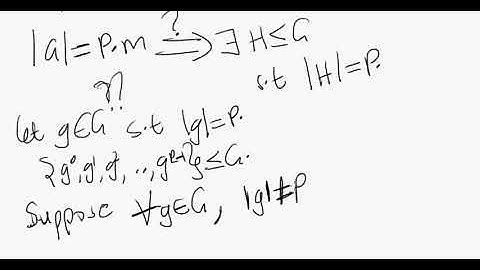 |G|=p.m ?⟹ ∃ H≤G
s.t |H|=p.
let g∈G s.t |g|=p.
{g⁰,g¹,g²,..,gᵖ⁻¹}≤G.
Suppose ∀g∈G, |g|≠p